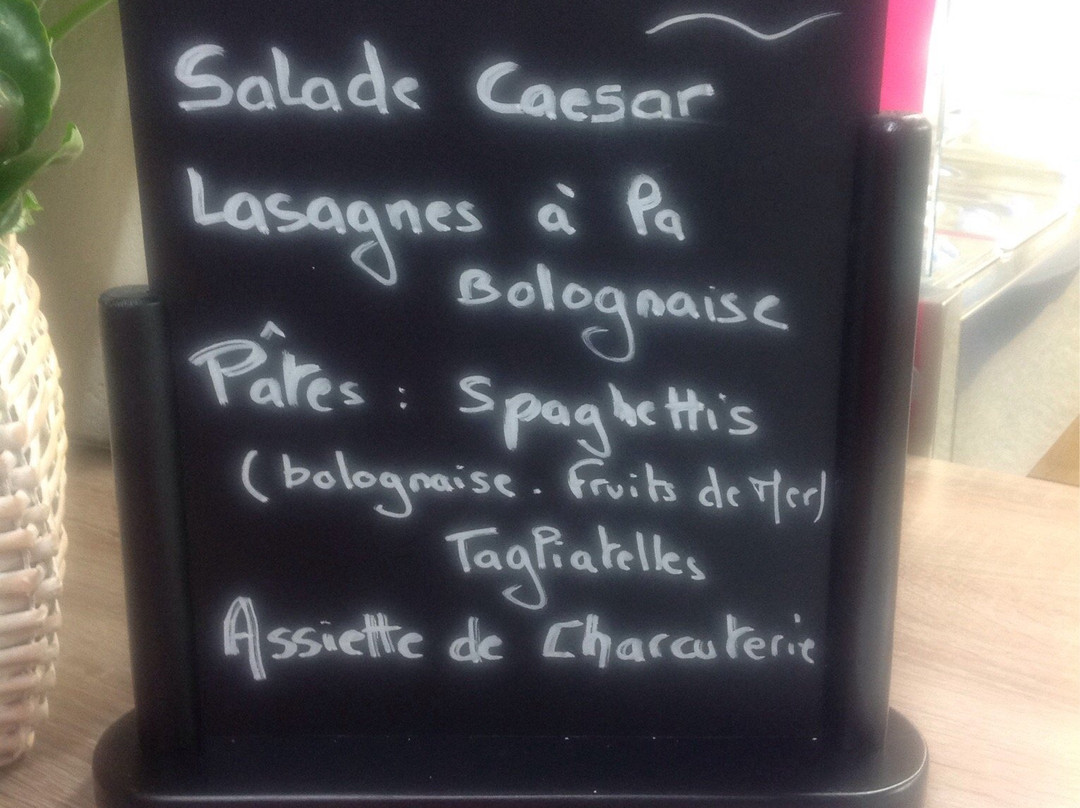 Salade Caesar
Lasagnes à la
Bolognaise
Pâtes : Spaghettis
(bolognaise. Fruits de Mer)
Tagliatelles
Assiette de Charcuterie